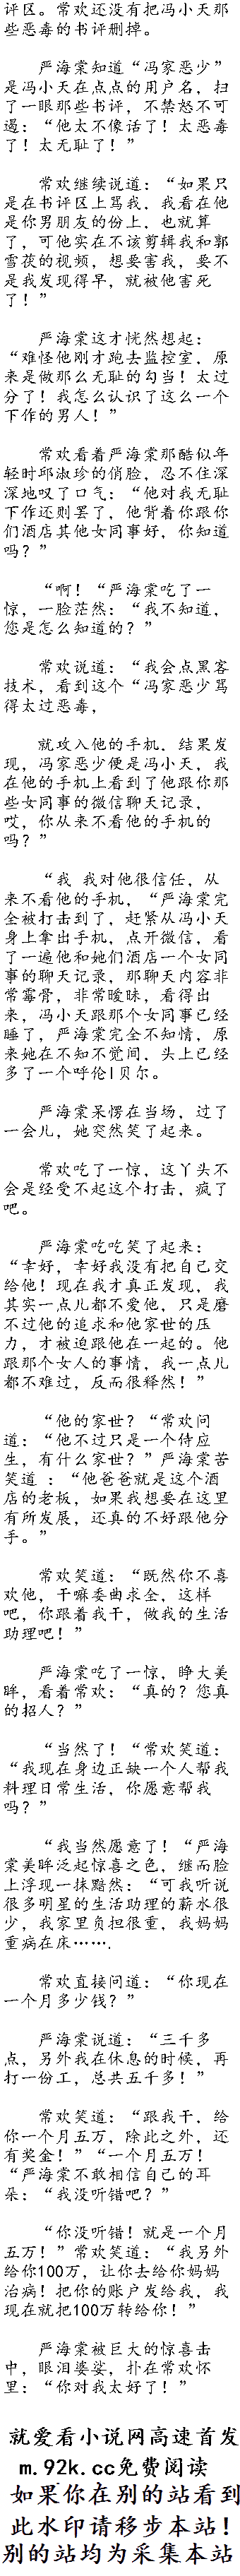 评区。常欢还没有把冯小天那
些恶毒的书评删掉。
严海棠知道“冯家恶少”
是冯小天在点点的用户名，扫
了一眼那些书评，不禁怒不可
遏：“他太不像话了！太恶毒
了！太无耻了！”
常欢继续说道：“如果只
是在书评区上骂我，我看在他
是你男朋友的份上，也就算
了，可他实在不该剪辑我和郭
雪茯的视频，想要害我，要不
是我发现得早，就被他害死
了！”
严海棠这才恍然想起：
“难怪他刚才跑去监控室，原
来是做那么无耻的勾当！太过
分了！我怎么认识了这么一个
下作的男人！”
常欢看着严海棠那酷似年
轻时邱淑珍的俏脸，忍不住深
深地叹了口气：“他对我无耻
下作还则罢了，他背着你跟你
们酒店其他女同事好，你知道
吗？”
“啊！“严海棠吃了一
惊，一脸茫然：“我不知道，
您是怎么知道的？”
常欢说道：“我会点黑客
技术，看到这个“冯家恶少骂
得太过恶毒，
就攻入他的手机，结果发
现，冯家恶少便是冯小天，我
在他的手机上看到了他跟你那
些女同事的微信聊天记录，
哎，你从来不看他的手机的
吗？”
“我 我对他很信任，从
来不看他的手机，“严海棠完
全被打击到了，赶紧从冯小天
身上拿出手机，点开微信，看
了一遍他和她们酒店一个女同
事的聊天记录，那聊天内容非
常露骨，非常暧昧，看得出
来，冯小天跟那个女同事已经
睡了，严海棠完全不知情，原
来她在不知不觉间，头上已经
多了一个呼伦|贝尔。
严海棠呆愣在当场，过了
一会儿，她突然笑了起来。
常欢吃了一惊，这丫头不
会是经受不起这个打击，疯了
吧。
严海棠吃吃笑了起来：
“幸好，幸好我没有把自己交
给他！现在我才真正发现，我
其实一点儿都不爱他，只是磨
不过他的追求和他家世的压
力，才被迫跟他在一起的。他
跟那个女人的事情，我一点儿
都不难过，反而很释然！”
“他的家世？“常欢问
道：“他不过只是一个侍应
生，有什么家世？”严海棠苦
笑道 ：“他爸爸就是这个酒
店的老板，如果我想要在这里
有所发展，还真的不好跟他分
手。”
常欢笑道：“既然你不喜
欢他，干嘛委曲求全，这样
吧，你跟着我干，做我的生活
助理吧！”
严海棠吃了一惊，睁大美
眸，看着常欢：“真的？您真
的招人？”
“当然了！“常欢笑道：
“我现在身边正缺一个人帮我
料理日常生活，你愿意帮我
吗？”
“我当然愿意了！“严海
棠美眸泛起惊喜之色，继而脸
上浮现一抹黯然：“可我听说
很多明星的生活助理的薪水很
少，我家里负担很重，我妈妈
重病在床…….
常欢直接问道：“你现在
一个月多少钱？”
严海棠说道：“三千多
点，另外我在休息的时候，再
打一份工，总共五千多！”
常欢笑道：“跟我干，给
你一个月五万，除此之外，还
有奖金！”“一个月五万！
“严海棠不敢相信自己的耳
朵：“我没听错吧？”
“你没听错！就是一个月
五万！”常欢笑道：“我另外
给你100万，让你去给你妈妈
治病！把你的账户发给我，我
现在就把100万转给你！”
严海棠被巨大的惊喜击
中，眼泪婆娑，扑在常欢怀
里：“你对我太好了！”
就爱看小说网高速首发
m.92k.cc免费阅读
如果你在别的站看到
此水印请移步本站！
别的站均为采集本站